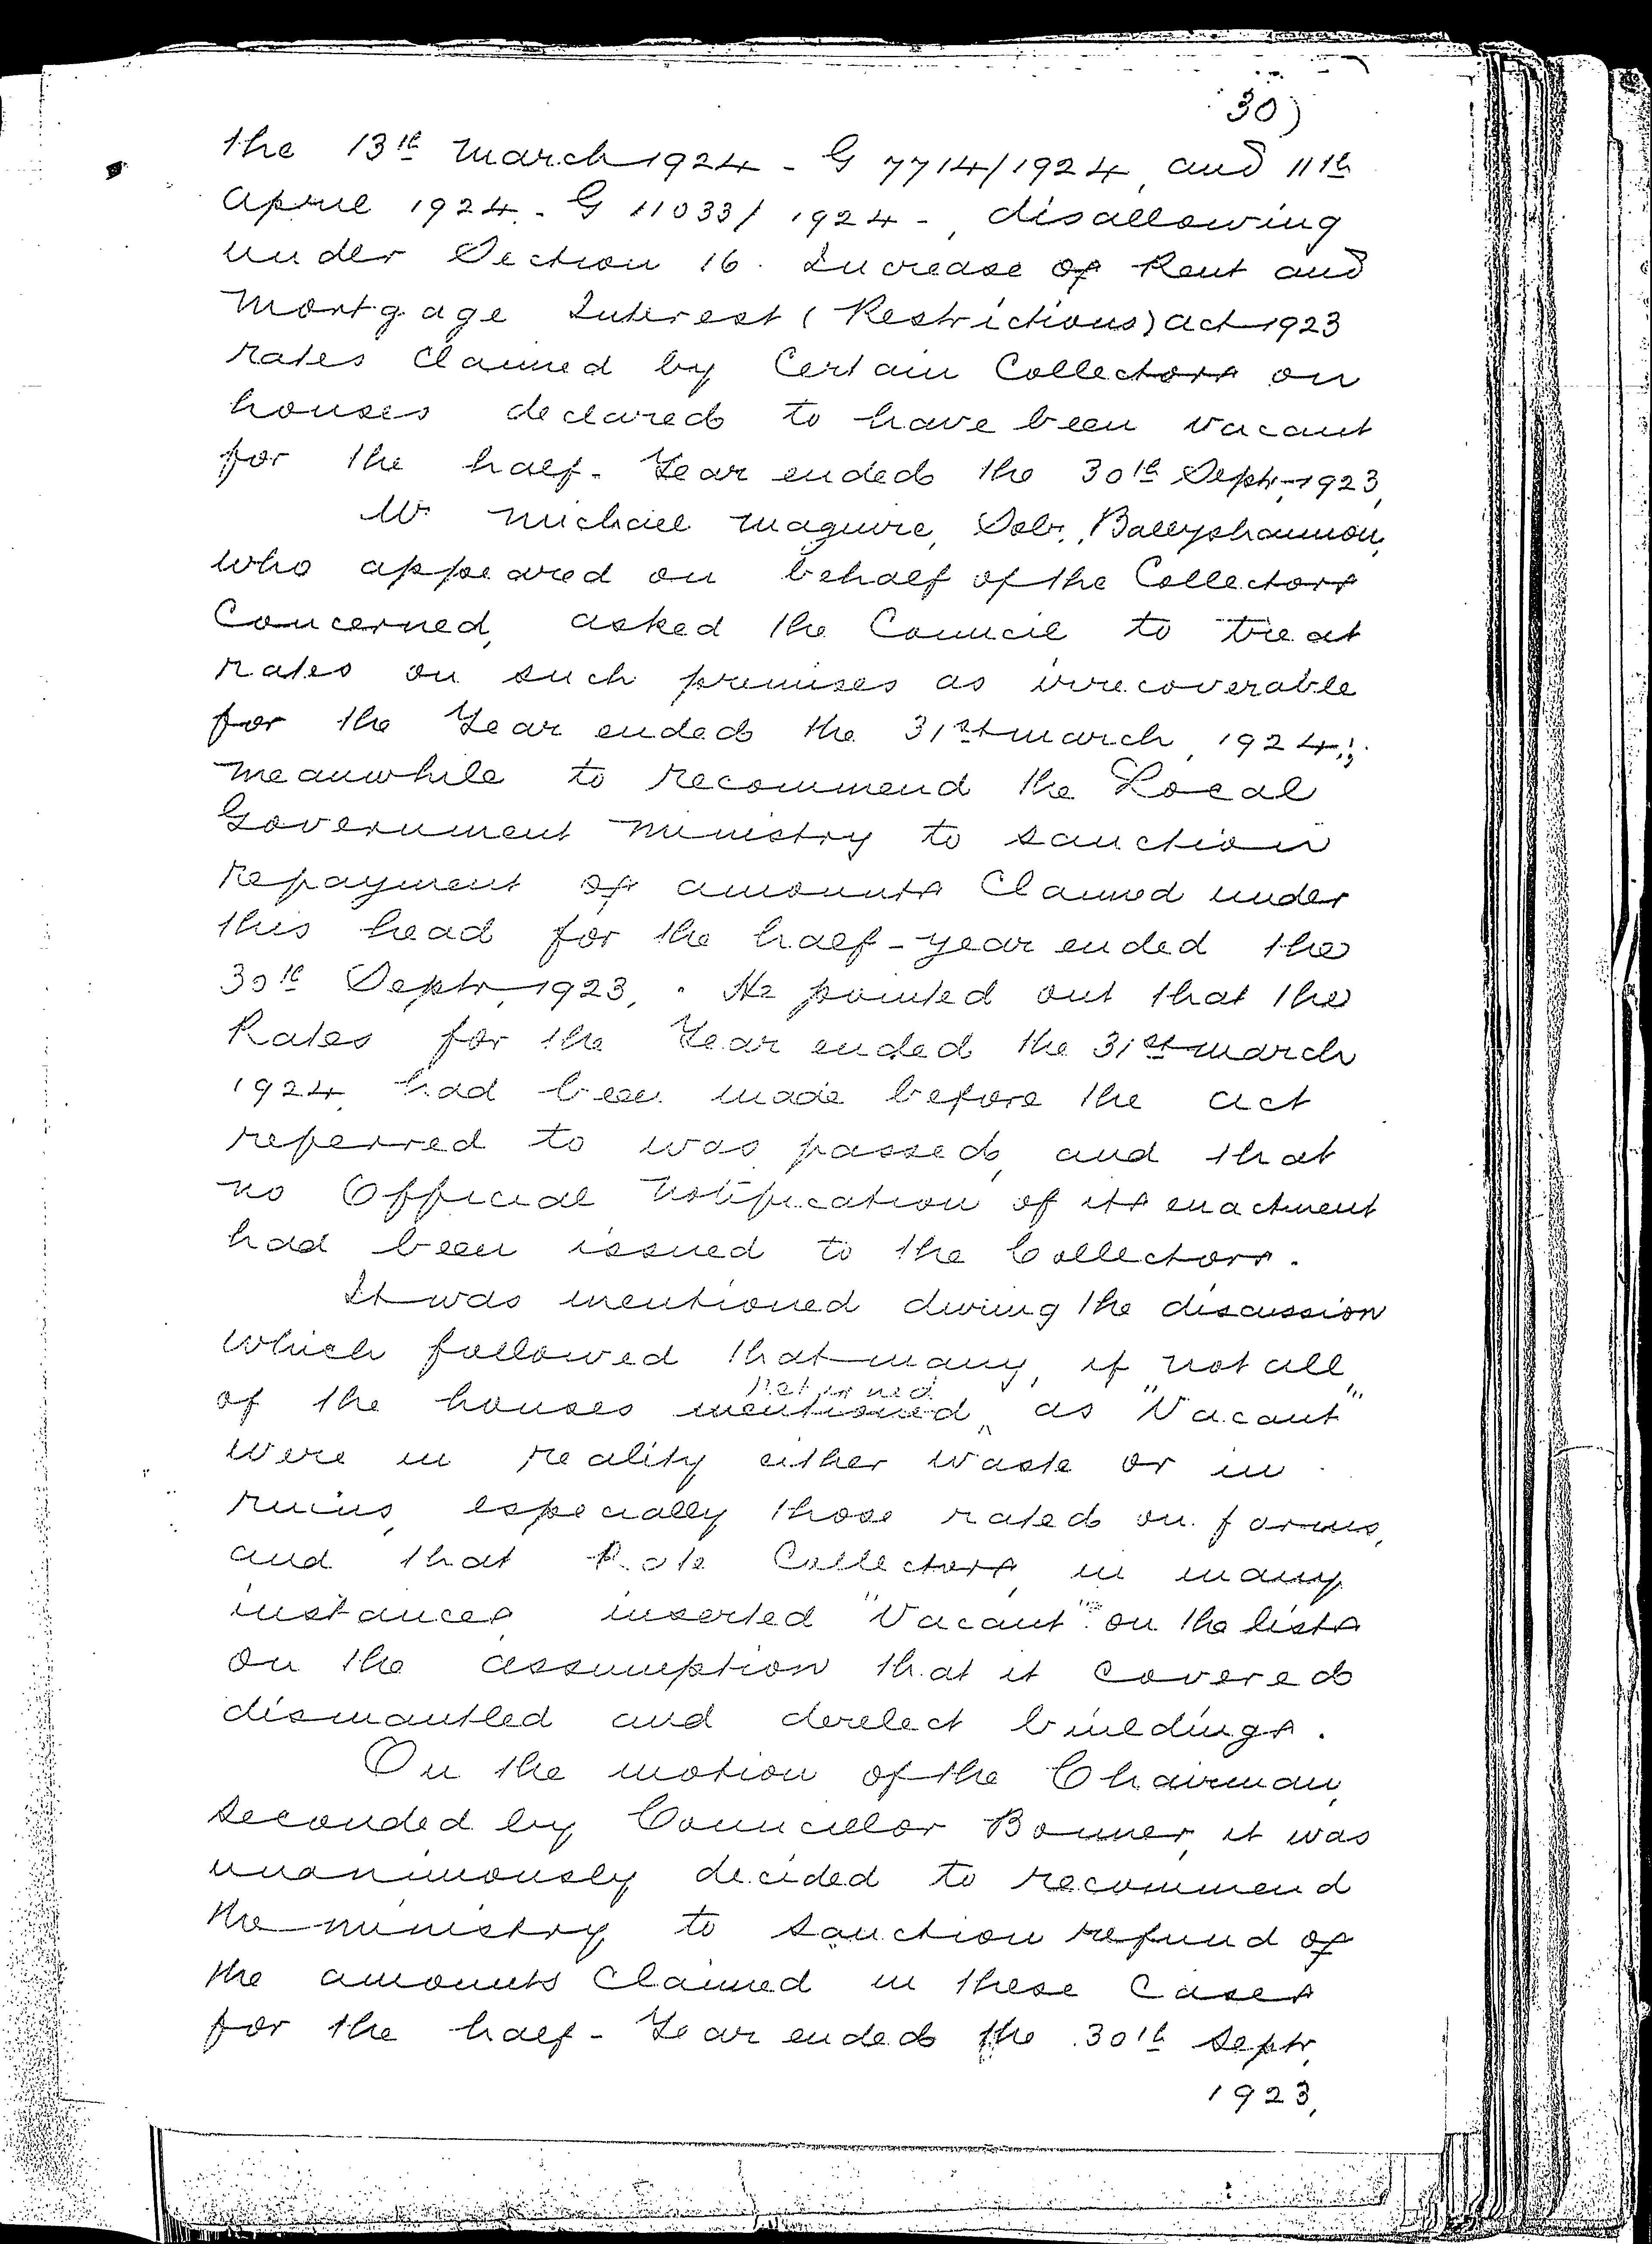 30)
the 13th March 1924 - G 7714/1924, and 11th
April 1924 - G 11033/1924 -, disallowing
under Section 16. Increase of Rent and
Mortgage Interest (Restrictions) Act 1923
rates claimed by Certain Collectors on
houses declared to have been vacant
for the half-Year ended the 30th Septr, 1923,
Mr Michael Maguire, Solr., Ballyshannon,
who appeared on behalf of the Collectors
Concerned, asked the Council to treat
rates on such premises as irrecoverable
for the Year ended the 31st March, 1924;
meanwhile to recommend the Local
Government Ministry to sanction
repayment of amounts Claimed under
this head for the half-year ended the
30th Septr, 1923. He pointed out that the
Rates for the Year ended the 31st March
1924, had been made before the Act
referred to was passed, and that
no Official Notification of its enactment
had been issued to the Collectors.
It was mentioned during the discussion
which followed that many, if not all,
returned
of the houses mentioned ^ as "Vacant"
were in reality either waste or in
ruins, especially those rated on farms,
and that Rate Collectors, in many
instances, inserted "Vacant" on the lists
on the assumption that it covered
dismantled and derelect buildings.
On the motion of the Chairman,
seconded by Councillor Bonner, it was
unanimously decided to recommend
the Ministry to sanction refund of
the amounts Claimed in these Cases
for the half-Year ended the 30th Septr,
1923,